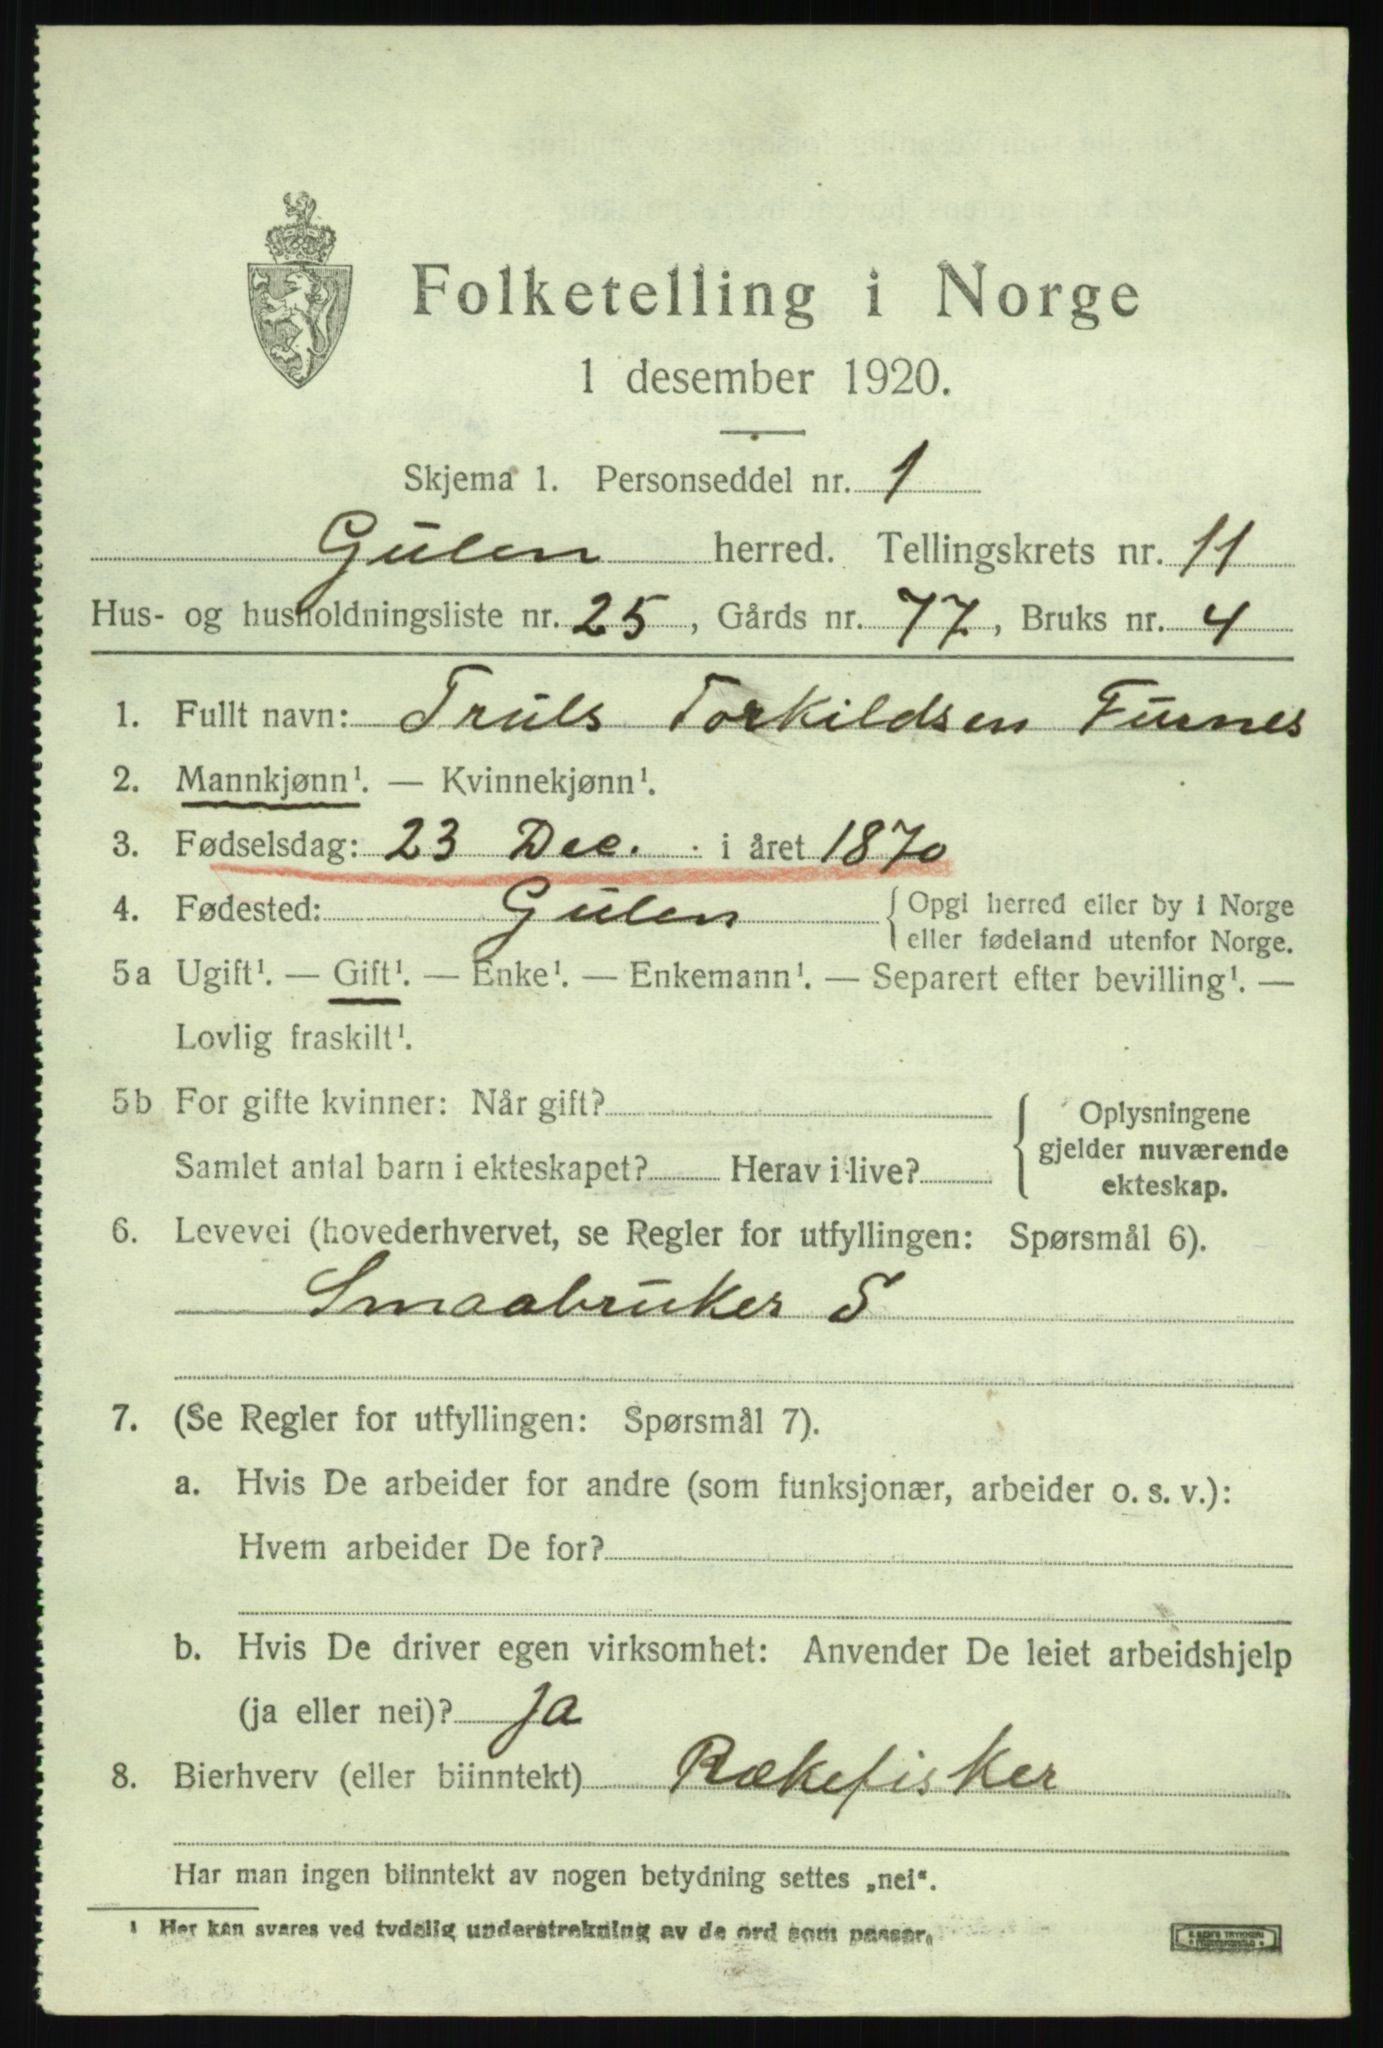 Folketelling i Norge
1 desember 1920.
Skjema 1. Personseddel nr. 1
Gulen herred. Tellingskrets nr. 11
Hus- og husholdningsliste nr. 25, Gårds nr. 77, Bruks nr. 4
1. Fullt navn: Truls Torkildsen Furnes
2. Mannkjønn¹. — Kvinnekjønn¹.
3. Fødselsdag: 23 Dec. i året 1870
4. Fødested: Gulen { Opgi herred eller by i Norge
eller fødeland utenfor Norge.
5a Ugift¹. — Gift¹. — Enke¹. — Enkemann¹. — Separert efter bevilling¹. —
Lovlig fraskilt¹.
5b For gifte kvinner: Når gift? { Oplysningene
gjelder nuværende
Samlet antal barn i ekteskapet? Herav i live? ekteskap.
6. Levevei (hovederhvervet, se Regler for utfyllingen: Spørsmål 6).
Smaabruker S
7. (Se Regler for utfyllingen: Spørsmål 7).
a. Hvis De arbeider for andre (som funksjonær, arbeider o. s. v.):
Hvem arbeider De for?
b. Hvis De driver egen virksomhet: Anvender De leiet arbeidshjelp
(ja eller nei)? Ja
8. Bierhverv (eller biinntekt) Rækefisker
Har man ingen biinntekt av nogen betydning settes „nei“.
¹ Her kan svares ved tydelig understrekning av de ord som passer.